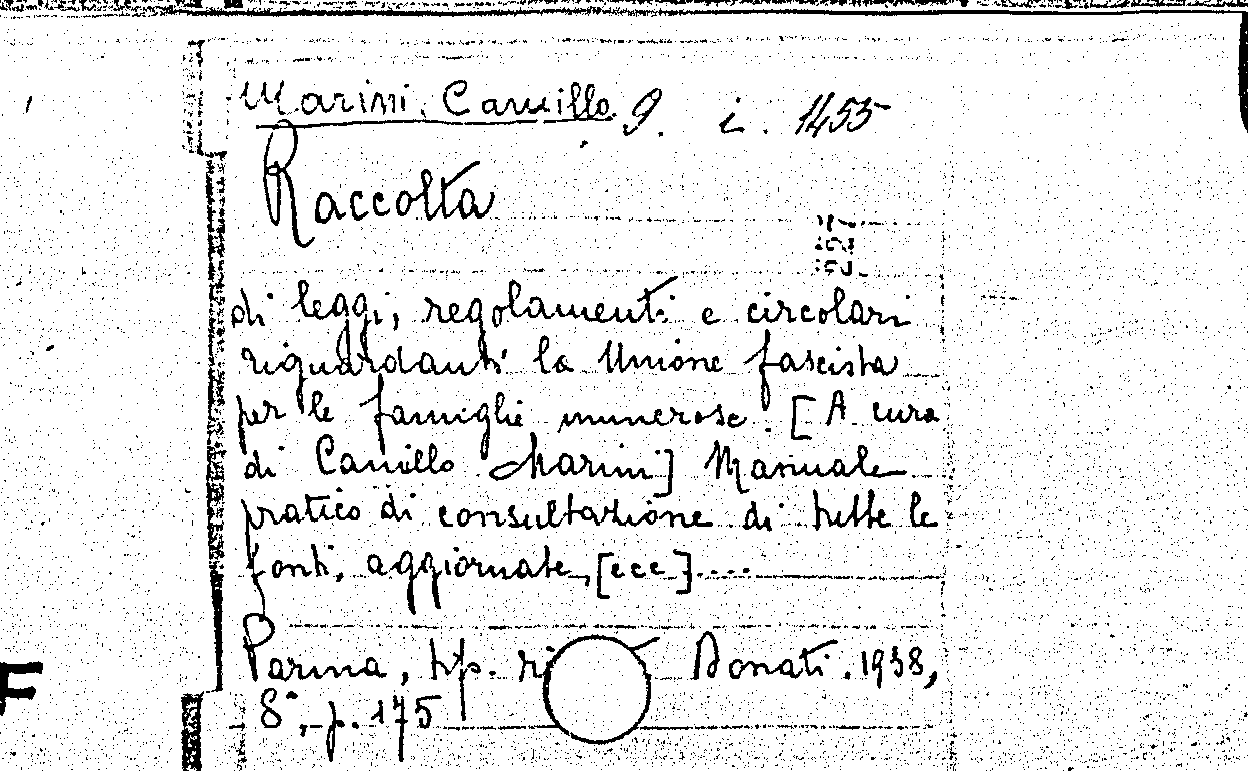 Marini, Camillo 9. i. 1455
Raccolta
di leggi, regolamenti e circolari
riguardanti la Unione fascista
per le famiglie numerose. [A cura
di Camillo Marini] Manuale
pratico di consultazione di tutte le
fonti, aggiornate, [ecc]....
Parma, tip. Donati. 1938,
8°, p. 175
F